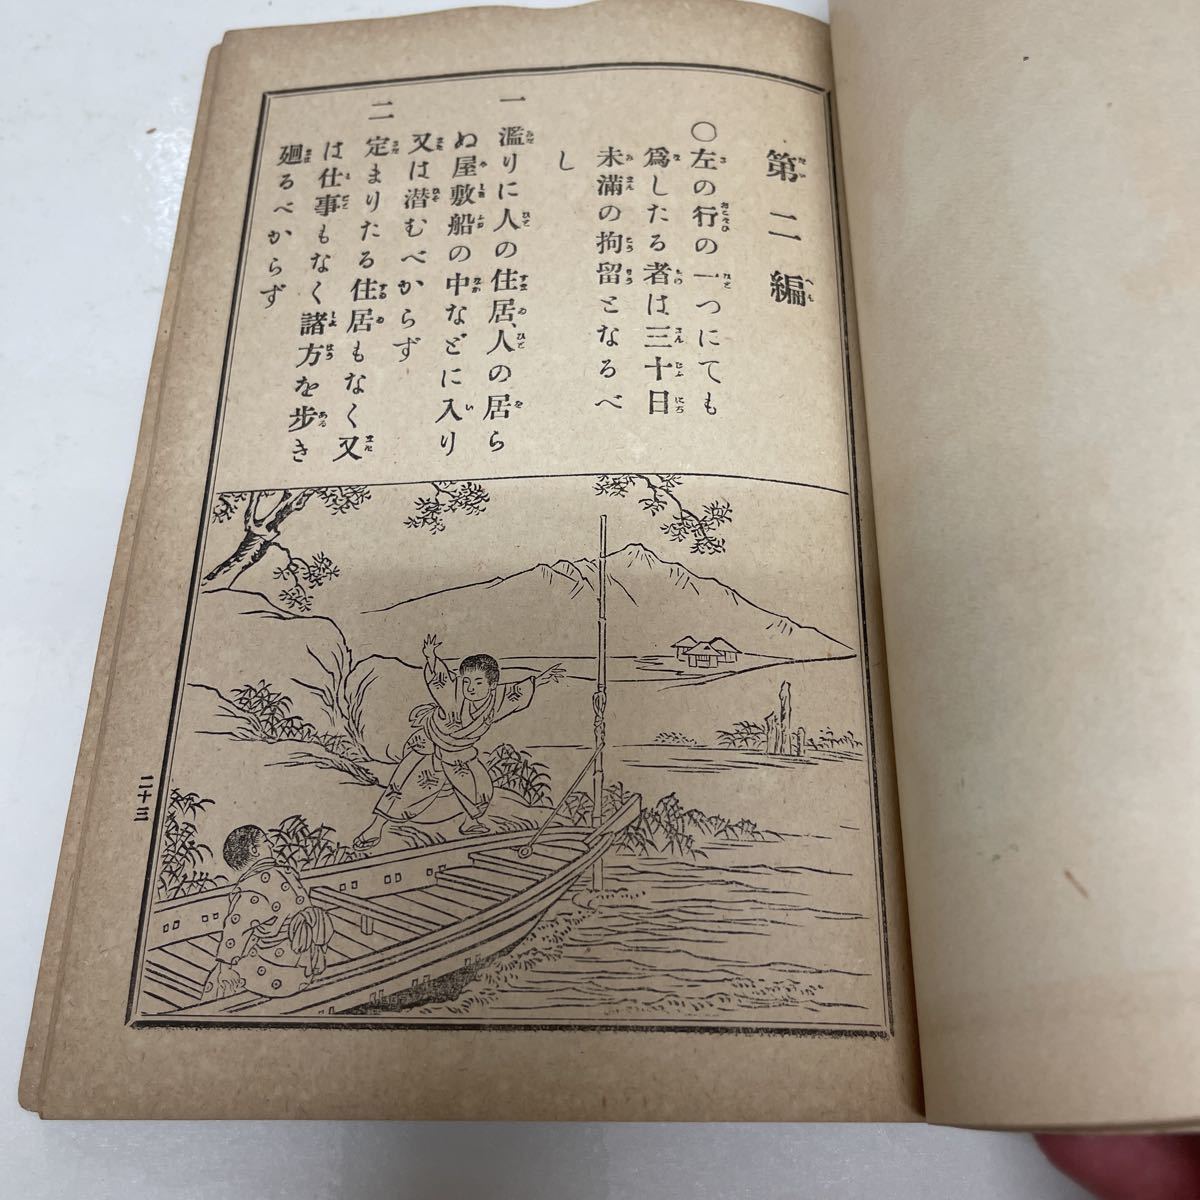 第二編
〇左の行の一つにても
爲したる者は三十日
未滿の拘留となるべ
し
一 濫りに人の住居、人の居ら
ぬ屋敷船の中などに入り
又は潜むべからず
二 定まりたる住居もなく又
は仕事もなく諸方を歩き
廻るべからず
二十三